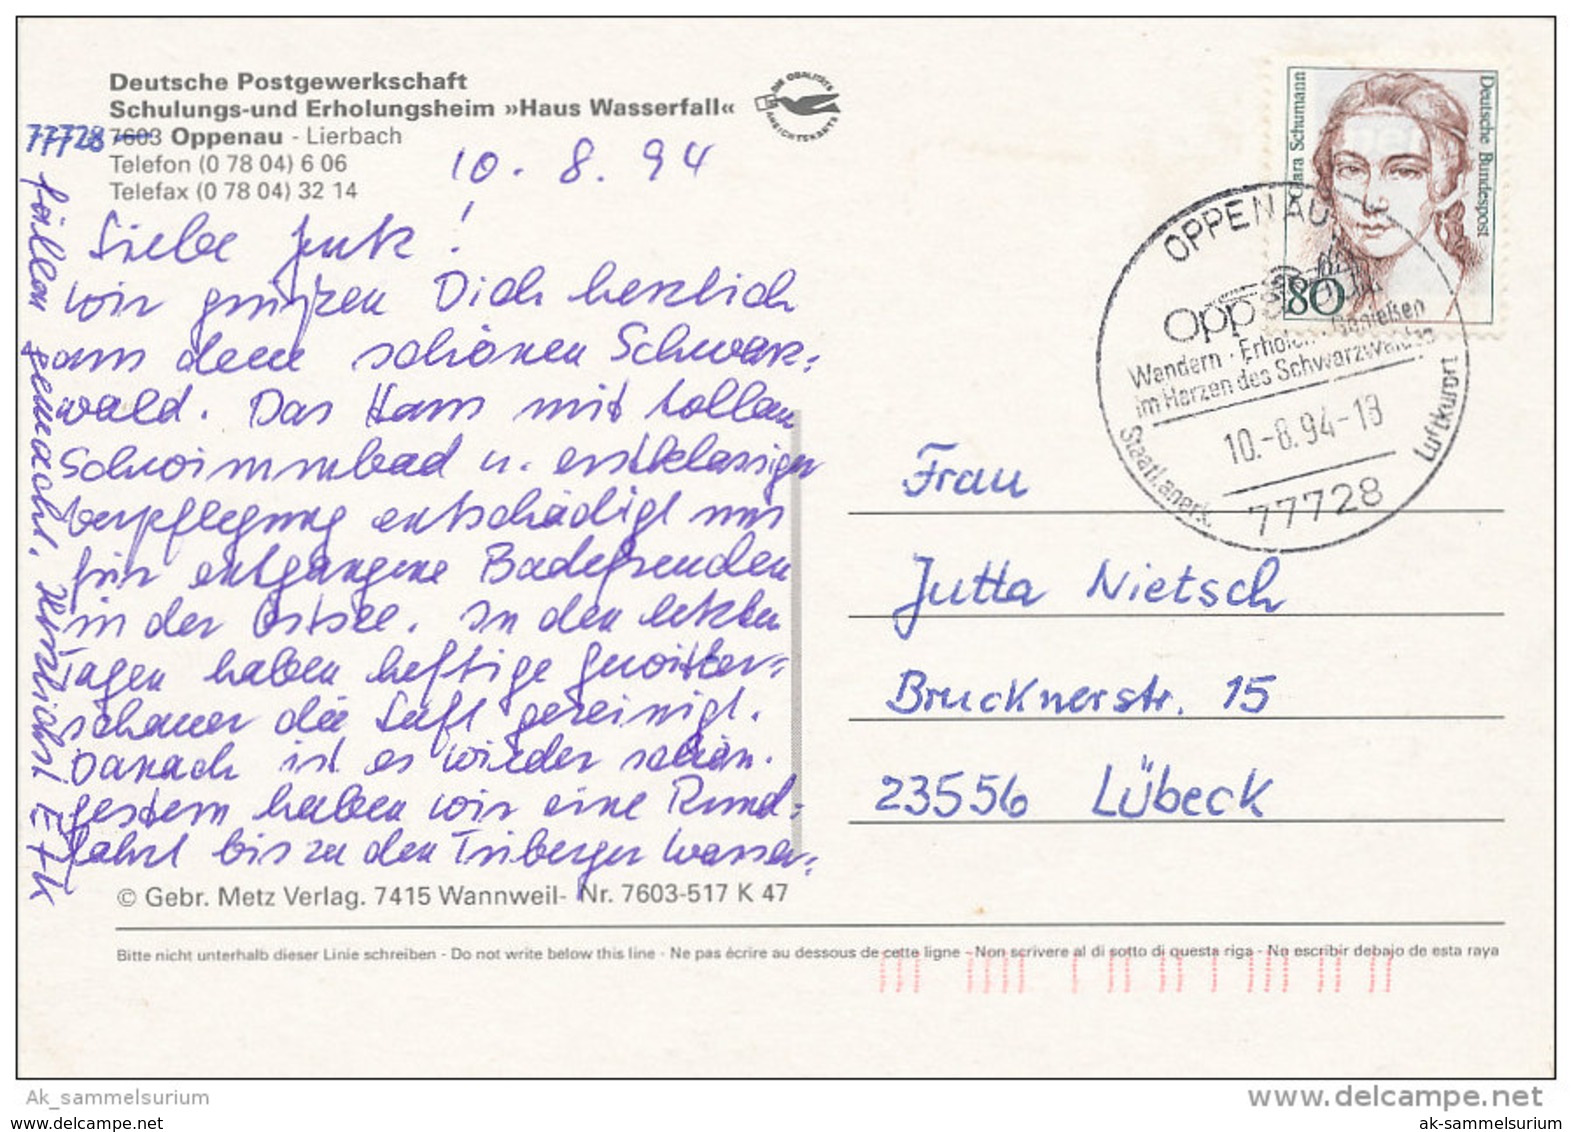 Deutsche Postgewerkschaft
Schulungs-und Erholungsheim »Haus Wasserfall«
77728 7603 Oppenau - Lierbach
Telefon (0 78 04) 6 06
Telefax (0 78 04) 32 14
10. 8. 94
Liebe Jutta!
wir grüßen Dich herzlich
aus dem schönen Schwarz-
wald. Das Haus mit tollem
Schwimmbad u. erstklassiger
Verpflegung entschädigt uns
für entgangene Badefreuden
in der Ostsee. In den letzten
Tagen haben heftige Gewitter-
schauer die Luft gereinigt.
Danach ist es wieder schön.
Gestern haben wir eine Rund-
fahrt bis zu den Triberger Wasser-
fällen gemacht. Herzlichst E + K
© Gebr. Metz Verlag. 7415 Wannweil- Nr. 7603-517 K 47
DIE QUALITÄTS
ANSICHTSKARTE
Clara Schumann
Deutsche Bundespost
80
OPPENAU
Opp
Wandern · Erholen · Genießen
im Herzen des Schwarzwaldes
10.-8.94-18
Staatl.anerk. Luftkurort
77728
Frau
Jutta Nietsch
Brucknerstr. 15
23556 Lübeck
Bitte nicht unterhalb dieser Linie schreiben - Do not write below this line - Ne pas écrire au dessous de cette ligne - Non scrivere al di sotto di questa riga - No escribir debajo de esta raya
Ak_sammelsurium
www.delcampe.net
www.delcampe.net
ak-sammelsurium